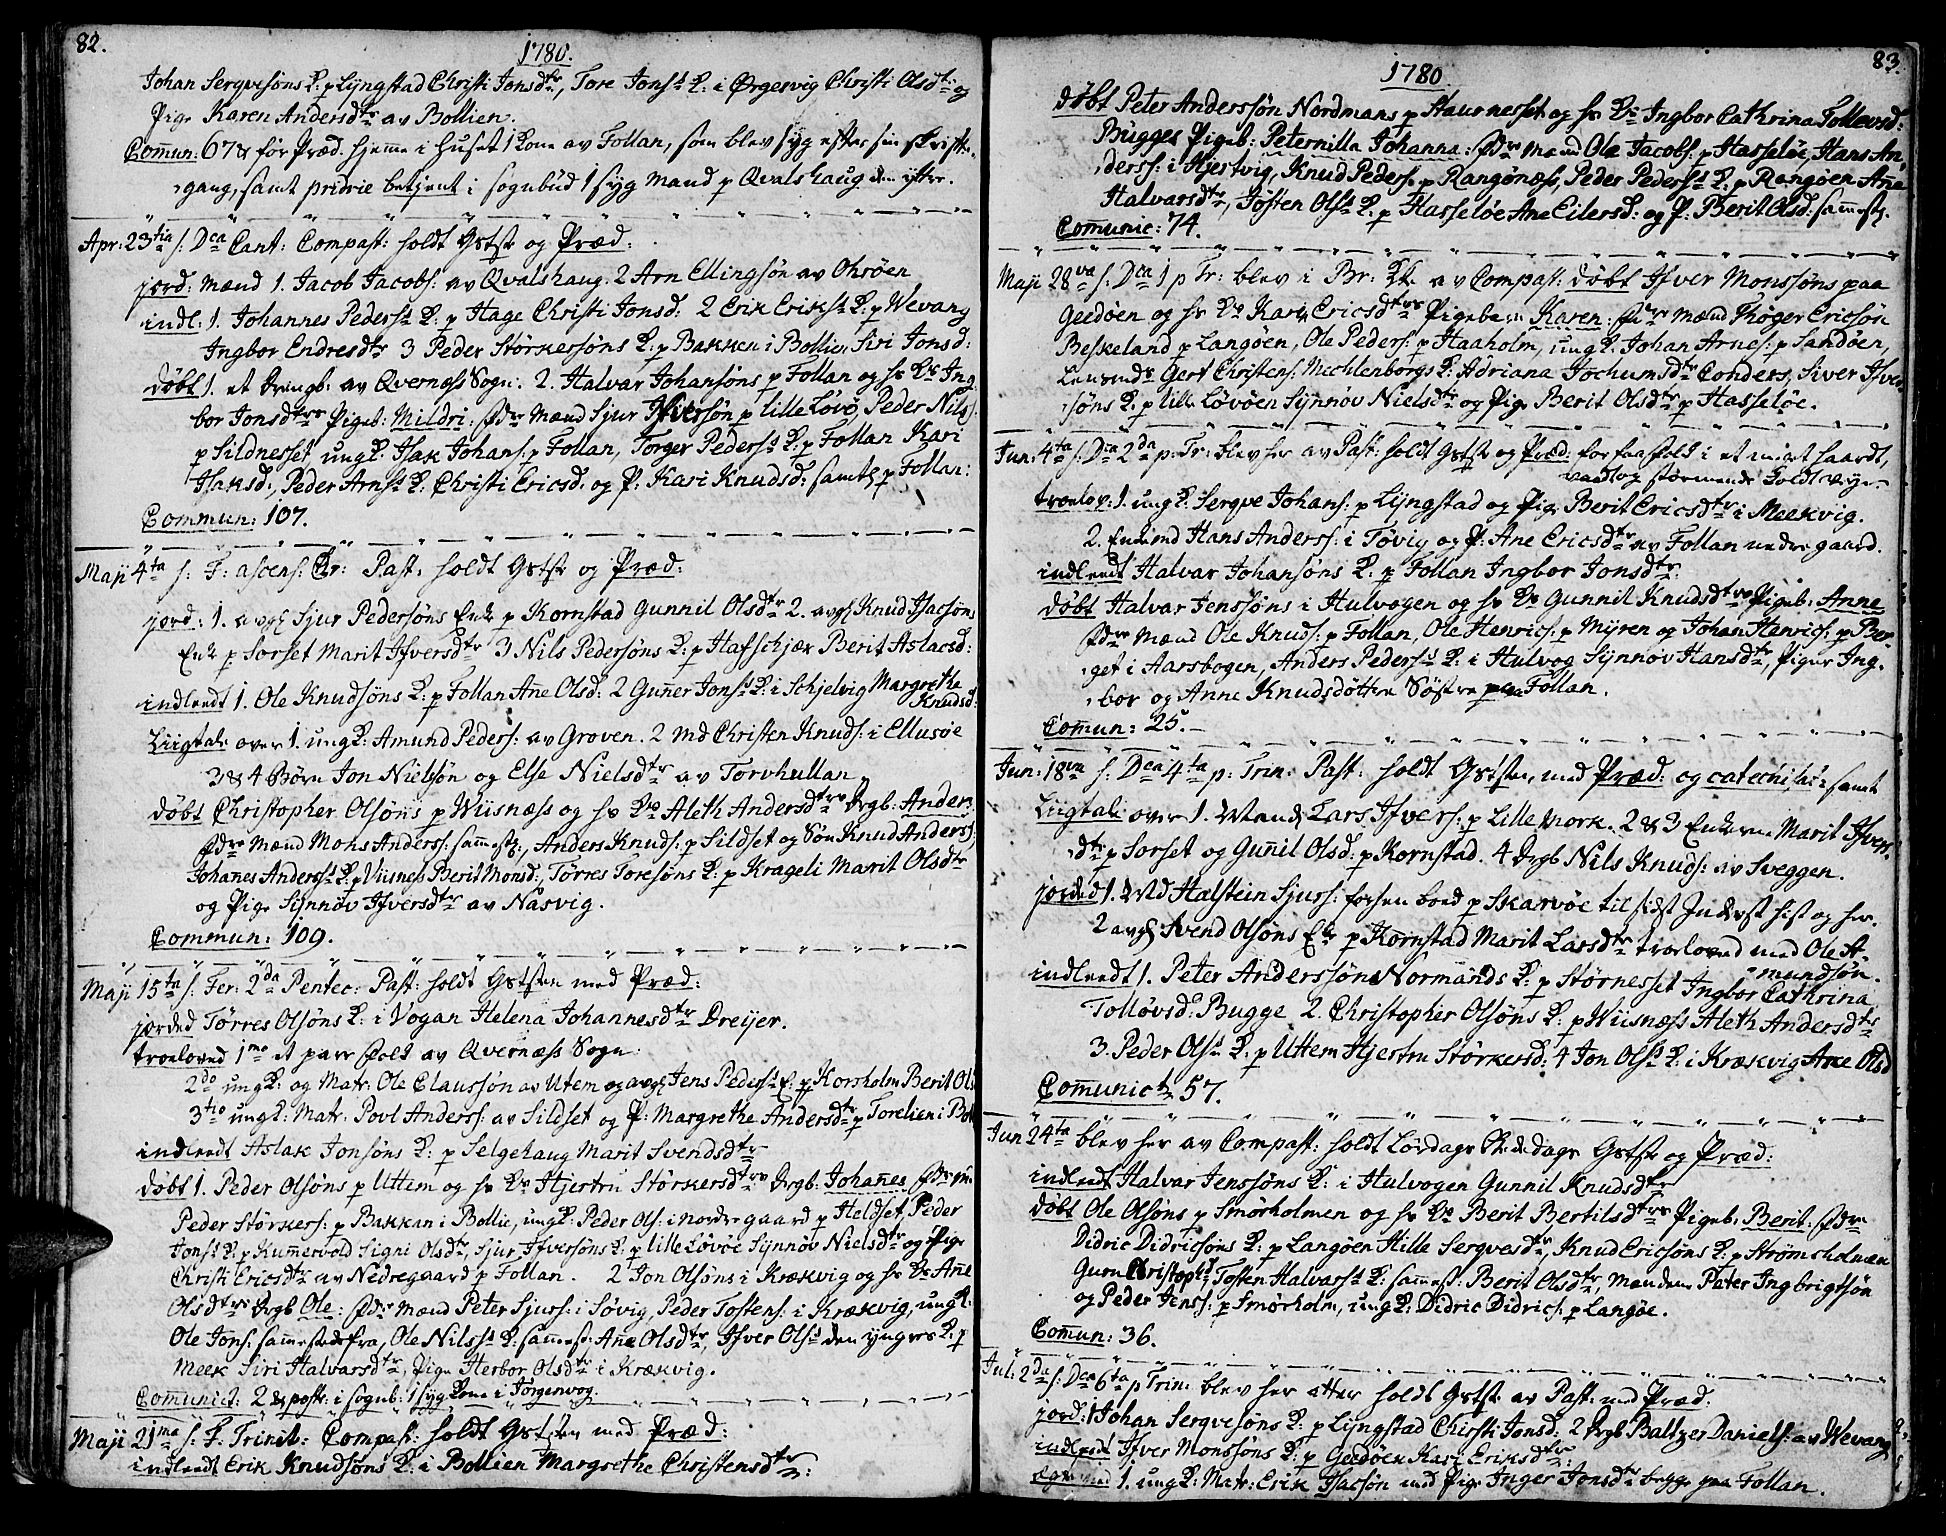 82.
1780.
Johan Sergvesøns K: p Lyngstad Christi Jonsdtr, Tore Jonss K: i Ørgesvig Christi Olsdtr og
Pige Karen Andersdtr av Bollien.
Comun: 67 & før Præd: hjemme i huset 1 Kone av Follan, som blev syg efter sin skrifte-
gang, samt pridie betjent i sognebud 1 syg Mand p Qvalshaug den yttre.
Apr: 23tia s: Dca Cant: Compast: holdt Gstst og Præd:
jord: Mænd 1. Jacob Jacobs: av Qvalshaug. 2 Arn Ellingsøn av Ohrsøen
indl: 1. Johannes Pederss K: p Hage Christi Jonsd: 2 Erik Erikss K: p Wevang
Ingbor Endresdtr 3 Peder Størkersøns K: p Bakken i Bollie Siri Jonsd:
døbt 1. et Drengb: av Qvernæss Sogn: 2. Halvar Johansøns p Follan og hs Ks Ing
bor Jonsdtrs Pigeb: Mildri: Fdre Mænd Sjur Ifversøn p Lille Løvø, Peder Nils:
p Sildnesset ungK: Isak Johans: p Follan, Torger Pederss K: p Follan Kari
Isaksd:, Peder Arnss K: Christi Ericsd: og P: Kari Knudsd: samtl p Follan:
Commun: 107.
Maji 4ta s: F: ascens: Chr: Past: holdt Gstst og Præd:
jord: 1. avgl Sjur Pedersøns Enk p Kornstad Gunnil Olsdtr 2. avgl Knud Isacsøns
Enk p Sorset Marit Ifversdtr 3 Nils Pedersøns K: p Hafschjær Berit Aslacsd:
indleedt 1. Ole Knudsøns K: p Follan Ane Olsd: 2 Guner Jonss K: i Schjelvig Margrethe
Knudsd:
Liigtale over 1. ungK: Amund Peders: av Groven. 2 Md Christen Knuds: i Ellusøe
3 & 4 Børn Jon Nielsøn og Else Nielsdtr av Torvhullan
døbt Christopher Olsøns p Wiisnæss og hs Ks Aleth Andersdtrs Drgb: Anders:
Fdre Mænd Mons Anderss: sammestz, Anders Knuds: p Sildset og Søn Knud Anderss:,
Johanes Anderss K: p Viisness Berit Monsd:, Tørres Toresøns K: p Krageli Marit Olsdtr
og Pige Synnøv Ifversdtr av Nasvig.
Commun: 109.
Maji 15ta s: Fer: 2da Pentec: Past: holdt Gststen med Præd:
jorded Tørres Olsøns K: i Vogan Helena Johannesdtr Dreijer.
troeloved 1mo et parr Folk av Qvernæss Sogn:
2do ungK: og Matr: Ole Claussøn av Utem og avgl Jens Pederss E: p Korsholm Berit Ol:
3tio ungK: Matr: Povl Anderss: av Sildset og P: Margrethe Andersdtr p Torelien i Bol
indleedt Aslak Jonsøns K: p Selgehaug Marit Svendsdtr
døbt 1. Peder Olsøns p Uttem og hs Ks Hjertru Størkersdtrs Drgb: Johanes Fdre Mæ
Peder Størkers: p Bakkan i Bollie, ungK: Peder Ols: i Nordregaard p Heldset, Peder
Jonss K: p Kummervold Signi Olsdtr, Sjur Ifversøns K: p lille Løvøe Synnøv Nielsdtr og Pige
Christi Ericsdtr av Nedregaard p Follan. 2 Jon Olsøns i Krækvig og hs Ks Ane
Olsdtrs Drgb Ole: Fdre Mænd Peter Sjurs: i Søvig, Peder Tostens: i Krækvig, ungK:
Ole Jons: sammestedsfra, Ole Nilss K: sammest: Ane Olsdtr, Ifver Olss den yngres K: p
Meek Siri Halvarsdtr, Pige Herbor Olsdtr i Krækvig.
Comunict: 2 & post: i sogneb: 1 syg Kone i Jørgenvog.
Maji 21ma s: F: Trinit: Compast: holdt Gststen med Præd:
indleedt Erik Knudsøns K: i Bollien Margrethe Christensdtr:
83.
1780
døbt Peter Anderssøn Nordmans p Staurnesset og hs Ks Ingbor Cathrina Tollevsd:
Bugges Pigeb: Peternilla Johanna: Fdre Mænd Ole Jacobs: p Hasseløe, Hans An-
derss: i Hjertvig, Knud Peders: p Rangønæss, Peder Pederss K: p Rangøen Ane
Halvarsdtr, Josten Olss K: p Hasseløe Ane Eilersd: og P: Berit Olsd: sammestz.
Comunic: 74.
Maji 28va s: Dca 1 p Tr: blev i Br: Kk av Compast: døbt Ifver Monssøns paa
Geedøen og hs Ks Kari Ericsdtrs Pigebarn Karen: Fdre Mænd Thøger Ericsøn
Beskeland p Langøen, Ole Peders: p Haaholm, ungK: Johan Arnes: p Sandøen,
Lensmds Gert Christens: Mechlenborgs K: Adriana Jochumsdtr Conders, Siver Ifver-
søns K: p lille Løvøen Synnøv Nielsdtr og Pige Berit Olsdtr p Hasseløe.
Jun: 4ta s: Dca 2da p: Tr: blev her av Past: holdt Gstst og Præd: for faa folk i et meget haardt,
vaadt og stormende Koldt veyr-
troelov: 1. ungK: Sergve Johans: p Lyngstad og Pige Berit Ericsdtr i Meekvig.
2. Enkemd Hans Anderss: i Tøvig og P: Ane Ericsdtr av Follan nedre gaard.
indleedt Halvar Johansøns K: p Follan Ingbor Jonsdtr:
døbt Halvar Jenssøns i Hulvogen og hs Ks Gunnil Knudsdtrs Pigeb: Anne
Fdre Mænd Ole Knuds: p Follan, Ole Henrics: p Myren og Johan Henrics: p Ber-
get i Aarsbogen, Anders Pederss K: i Hulvog Synnøv Hansdtr, Piger Ing-
bor og Anne Knudsdøttre Søstre paa Follan.
Comun: 25.
Jun: 18va s: Dca 4ta p: Trin: Past: holdt Gststen, med Præd: og catechisat: samt
Liigtale over 1. Mand Lars Ifvers: p Lille Nork. 2 & 3 Enkerne Marit Ifvers-
dtr p Sorset og Gunil Olsd: p Kornstad. 4 Drgb Nils Knuds: av Sveggen.
jorded 1. Md Halstein Sjurs: forhen boed p Skarvøe til sidst Inderst hist og her.
2 avgl Svend Olsøns Ek p Kornstad Marit Larsdtr troeloved med Ole A-
mundsøn.
indleedt 1. Peter Anderssøns Normands K: p Størnesset Ingbor Cathrina
Tolløvsd: Bugge 2. Christopher Olsøns K: p Wiisnæss Aleth Andersdtr
3. Peder Olss K: p Uttem Hjertru Størkersd: 4 Jon Olss K: i Krækvig Ane Olsd
Comunict 57.
Jun 24ta blev her av Compast: holdt Løverdags St: Hs dags Gstst og Præd:
indleedt Halvar Jenssøns K: i Hulvogen Gunnil Knudsdtr
døbt Ole Olsøns p Smørholmen og hs Ks Berit Bertilsdtrs Pigeb: Berit: Fdre
Didric Didricsøns K: p Langøen Hille Sergvesdtr, Knud Ericsøns K: p Strømsholmen
Guru Christophd, Tosten Halvarss K: sammest: Berit Olsdtr, Mændene Peter Ingbrigtsøn
og Peder Jenss: p Smørholm, ungK: Didric Didrics: p Langøe.
Comun: 36.
Jul: 2da s: Dca 6ta p Trin: blev her etter holdt Gstst av Past: med Præd:
jord: 1 Johan Sergvesøns K: p Lyngstad Christi Jonsd: 2 Drgb Baltzer Daniels: av Wevang
indleedt Ifver Monssøns K: p Geedøen Kari Eriksdtr:
egteviet 1. ungK: Matr: Erik Isacsøn med Pige Inger Jonsdtr begge paa Follan.